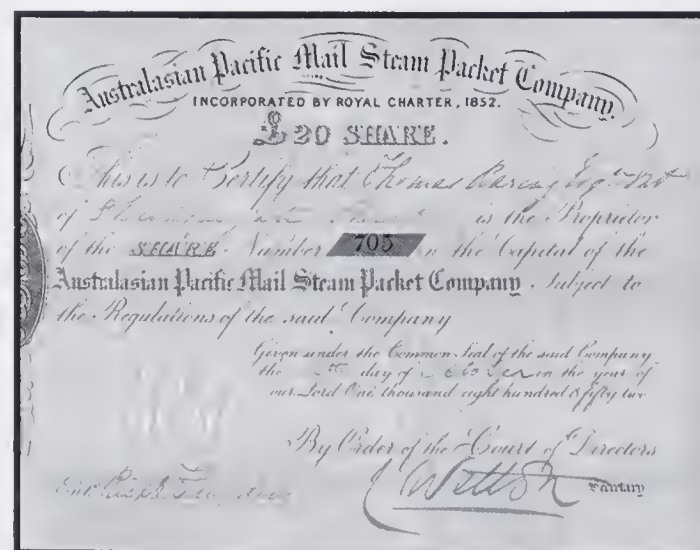 Australasian Pacific Mail Steam Packet Company.
INCORPORATED BY ROYAL CHARTER, 1852.
£20 SHARE.
This is to Certify that Thomas Baring Esqre
of is the Proprietor
of the SHARE Number 705 in the Capital of the
Australasian Pacific Mail Steam Packet Company, Subject to
the Regulations of the said Company
Given under the Common Seal of the said Company
the day of October in the year of
our Lord One thousand eight hundred & fifty two
By Order of the Court of Directors
Secretary